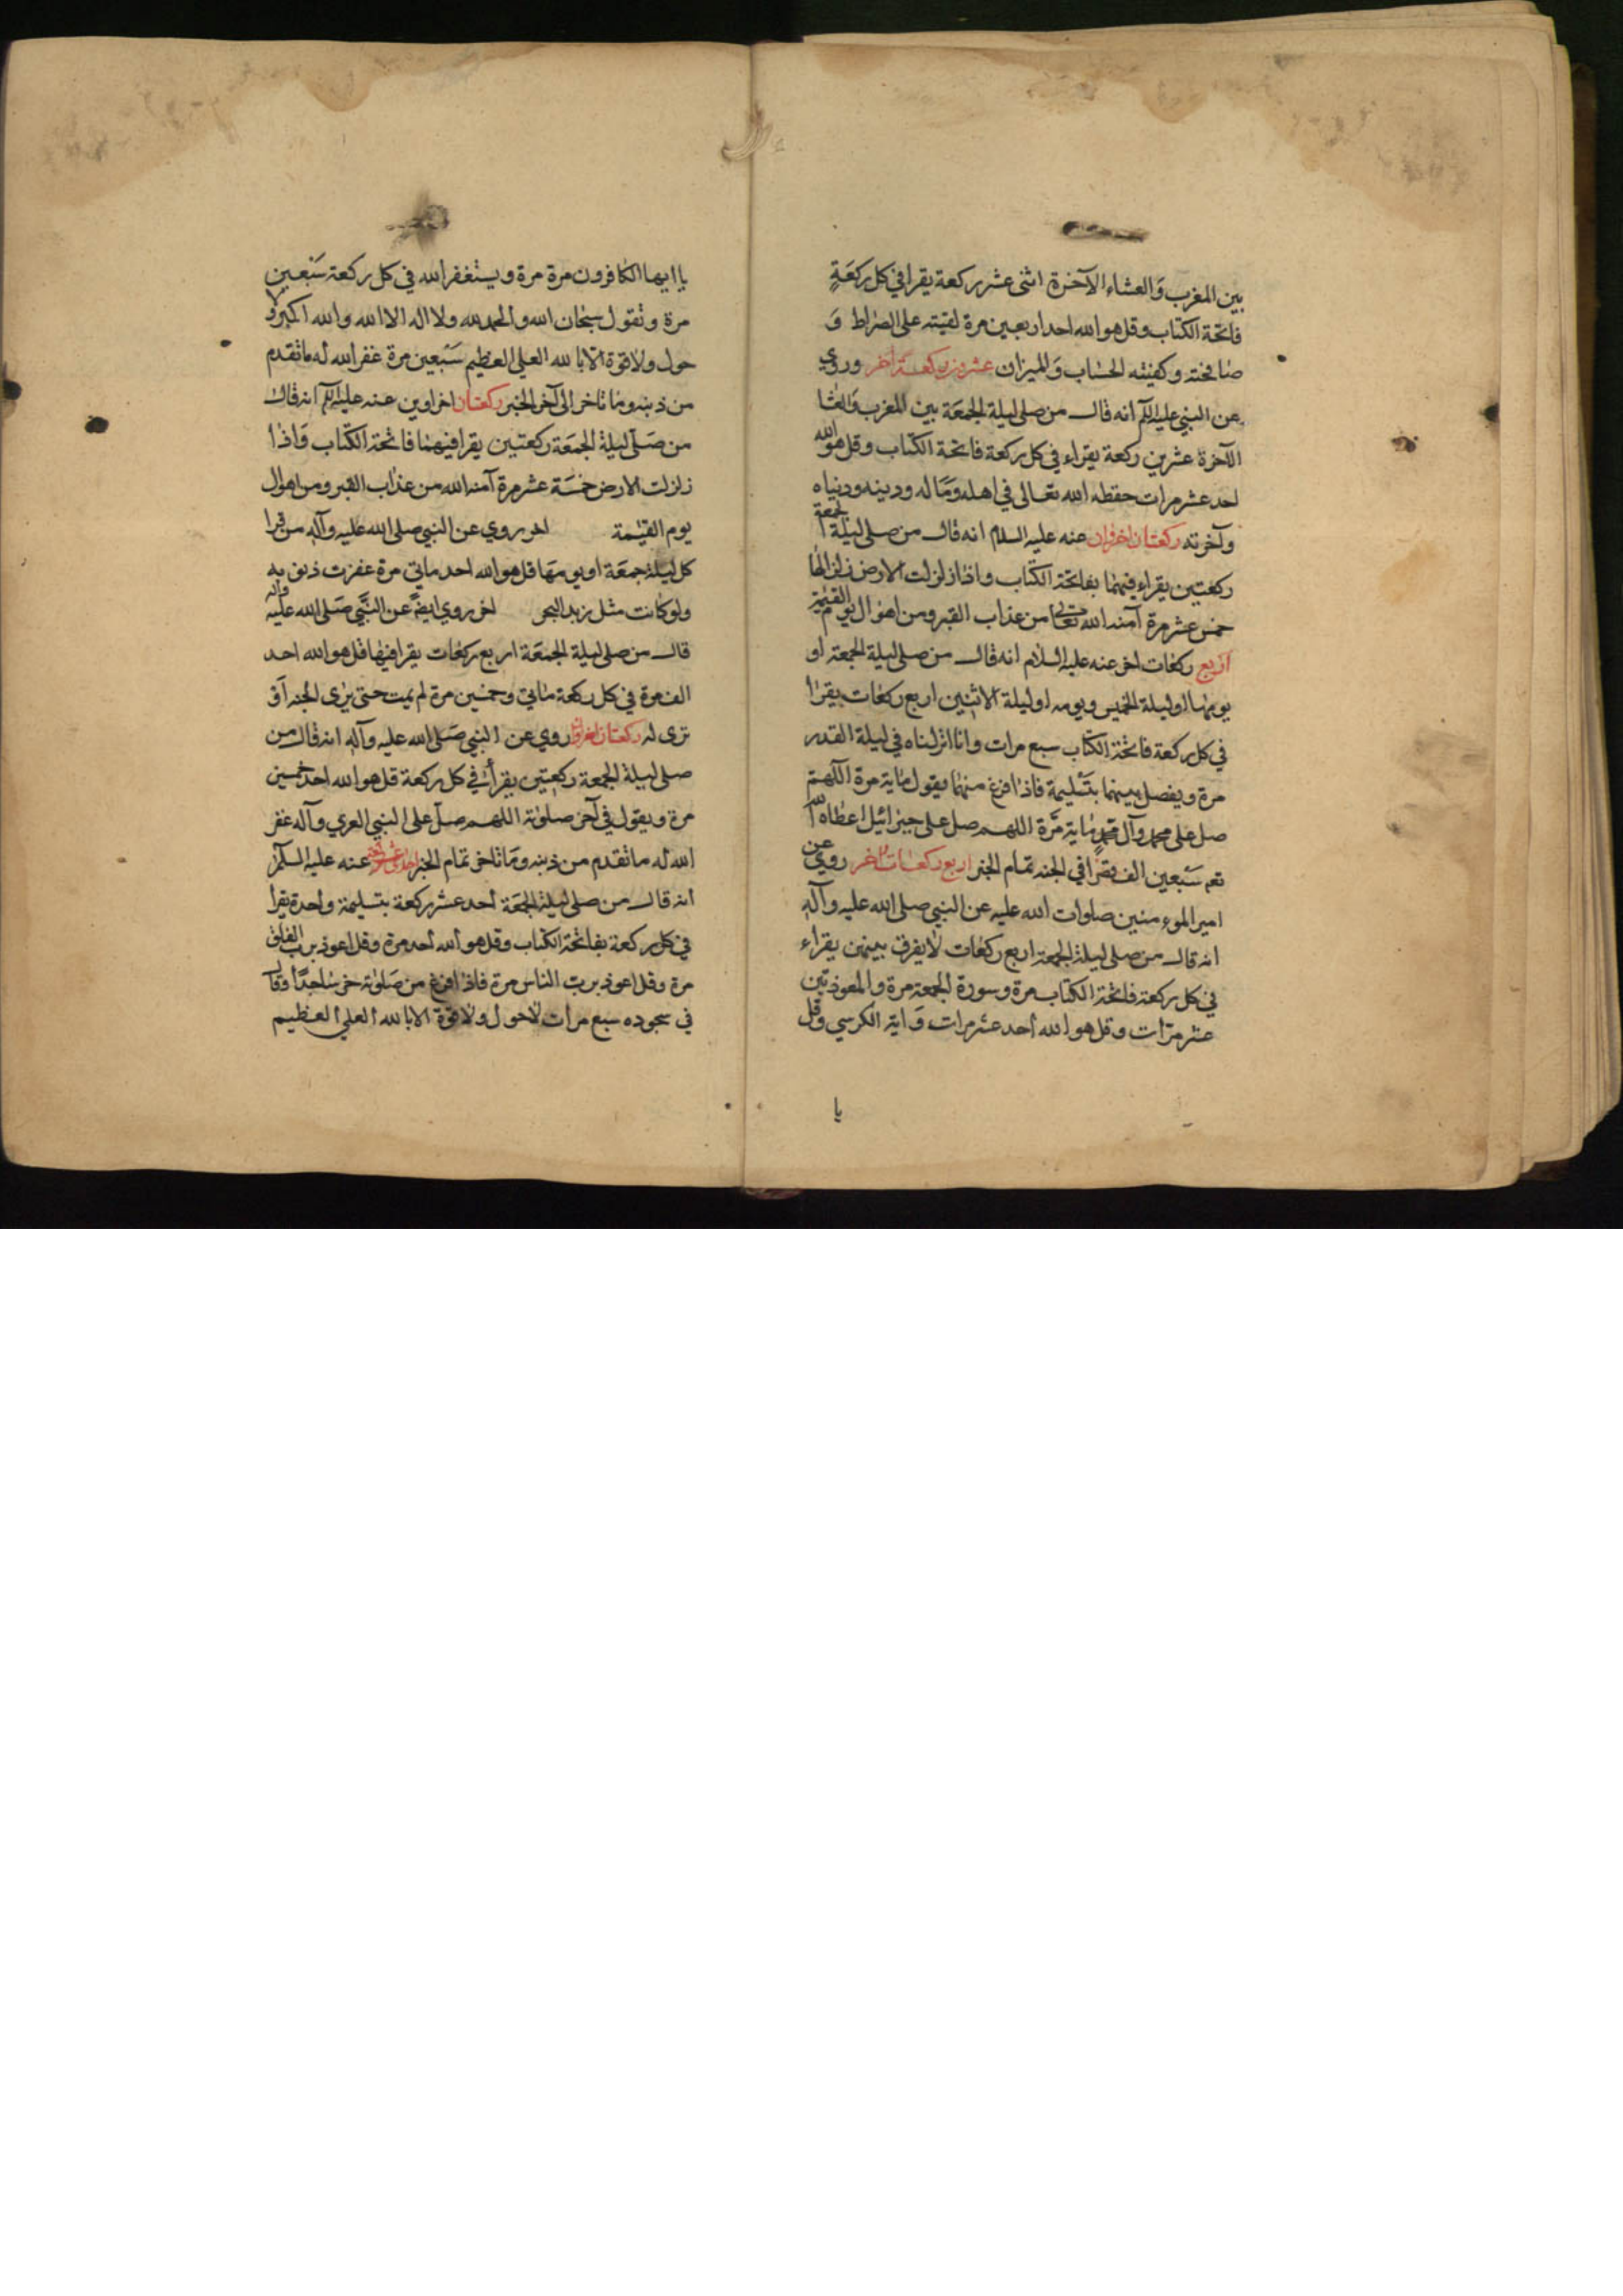 بين المغرب وَالعشاء الآخرة اثنى عشر ركعة يقرا في كل ركعَةٍ
فاتحة الكتاب وقل هو الله احد اربعين مرة لقيته على الصراط وَ
صافحته وكفيته الحساب وَالميزان عشرون ركعة اخر وروي
عن النبي عليه السلم انه قال من صلى ليلة الجمعَة بين المغرب وَالعشا
الآخرة عشرين ركعة يقراء في كل ركعة فاتحة الكتاب وقل هو الله
احد عشر مرات حفظه الله تعالى في اهله وَماله ودينه ودنياه
وآخرته ركعتان اخراوان عنه عليه السلام انه قال من صلى ليلة الجمعة
ركعتين يقراء فيهما بفاتحة الكتاب واذا زلزلت الارض زلزالها
خمس عشر مرة آمنه الله تعالى من عذاب القبر ومن اهوال يوم القيمة
اربع ركعات اخر عنه عليه السلام انه قال من صلى ليلة الجمعة او
يومها او ليلة الخميس ويومه او ليلة الاثنين اربع ركعات يقرا
في كل ركعة فاتحة الكتاب سبع مرات وانا انزلناه في ليلة القدر
مرة ويفصل بينهما بتسليمة فاذا فرغ منهما يقول ماية مرة اللهم
صل على محمد وآل محمد وماية مَرة اللهم صل على جبرائيل اعطاه الله
تعه سَبعين الف قصرا في الجنه تمام الخبر اربع ركعات اخر روي عن
امير المومنين صلوات الله عليه عن النبي صلى الله عليه وآله
انه قال من صلى ليلة الجمعة اربع ركعات لا يفرق بينهن يقراء
في كل ركعة فاتحة الكتاب مرة وسورة الجمعة مرة والمعوذتين
عشر مرّات وقل هو الله احد عشر مرات وَاية الكرسي وقل
يا
يا ايها الكافرون مرة مرة ويستغفر الله في كل ركعة سَبعين
مرة وتقول سبحان الله والحمد لله ولا اله الا الله والله اكبر ولا
حول ولا قوة الا بالله العلي العظيم سَبعين مرة غفر الله له ما تقدم
من ذنبه وما تاخر الى آخر الخبر ركعتان اخراوين عنه عليه السلم انه قال
من صَلى ليلة الجمعَة ركعتين يقرا فيهما فاتحة الكتاب وَاذا
زلزلت الارض خمسَة عشر مرة آمنه الله من عذاب القبر ومن اهوال
يوم القيمة اخر روي عن النبي صلى الله عليه وآله من قرا
كل ليلة جمعَة او يومهَا قل هو الله احد ماتي مرة غفرت ذنوبه
ولو كانت مثل زبد البحر اخر روي ايضًا عن النَّبي صَلى الله عليه وآله
قال من صلى ليلة الجمعَة اربع ركعات يقرا فيها قل هو الله احد
الف مرة في كل ركعة ماتي وخمسين مرة لم يمت حتى يرى الجنه اَو
ترى له ركعتان اخراوان روي عن النبي صَلى الله عليه وآله انه قال من
صلى ليلة الجمعة ركعتين يقرأ في كل ركعة قل هو الله احد خمسين
مرة ويقول في آخر صلوته اللهم صل على النبي العربي وآله غفر
الله له ما تقدم من ذنبه وَما تاخر تمام الخبر احدى عشر ركعة عنه عليه السلم
انه قال من صلى ليلة الجمعَة احد عشر ركعة بتسليمة واحدة يقرا
في كل ركعة بفاتحة الكتاب وقل هو الله احد مرة وقل اعوذ برب الفلق
مرة وقل اعوذ برب الناس مرة فاذا فرغ من صَلوته خر ساجدًا وقال
في سجوده سبع مرات لا حول ولا قوة الا بالله العلي العظيم